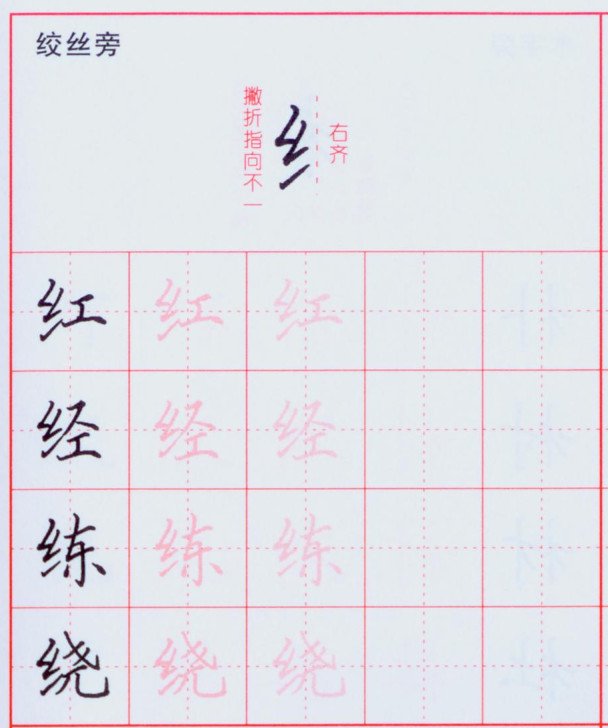 绞丝旁
撇折指向不一
纟
右齐
红 红 红
经 经 经
练 练 练
绕 绕 绕